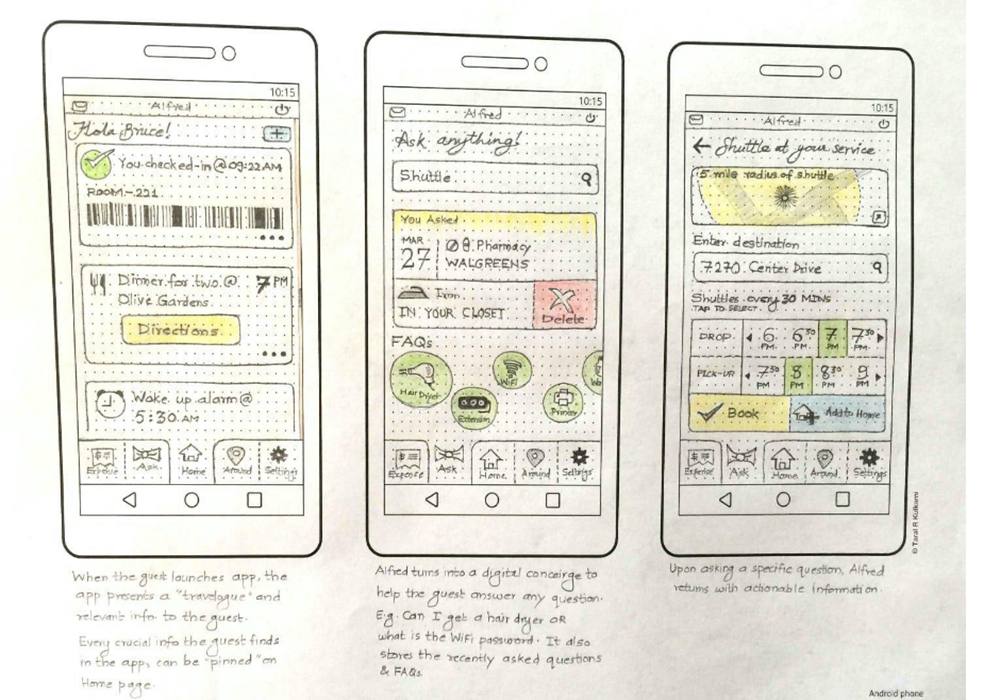 10:15
Alfred
Hola Bruce!
You checked-in @ 09:22 AM
ROOM - 221
Dinner for two @
Olive Gardens
7 PM
Directions
Wake up alarm @
5:30 AM
Expense Ask Home Around Settings
When the guest launches app, the
app presents a "travelogue" and
relevant info to the guest.
Every crucial info the guest finds
in the app, can be "pinned" on
Home page.
10:15
Alfred
Ask anything!
Shuttle
You Asked
MAR
27
Pharmacy
WALGREENS
Iron
IN YOUR CLOSET
Delete
FAQs
Hair Dryer
WiFi
Extension
Printer
Expense Ask Home Around Settings
Alfred turns into a digital conceirge to
help the guest answer any question.
E.g. Can I get a hair dryer OR
what is the WiFi password. It also
stores the recently asked questions
& FAQs.
10:15
Alfred
Shuttle at your service
5 mile radius of shuttle
Enter destination
7270 Center Drive
Shuttles every 30 MINS
TAP TO SELECT
DROP 6 PM 6 30 PM 7 PM 7 30
PICK-UP 7 30 PM 8 PM 8 30 PM 9 PM
Book
Add to Home
Expense Ask Home Around Settings
Upon asking a specific question, Alfred
returns with actionable information.
© Taral R Kulkarni
Android phone